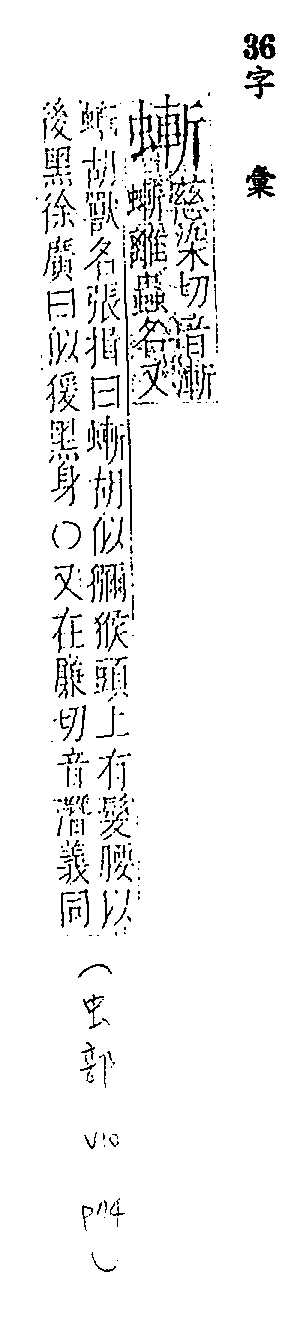 36
字彙
螹慈染切音漸
螹離蟲名又
螹胡獸名張揖曰螹胡似獼猴頭上有髮腰以
後黑徐廣曰似猨黑身○又在廉切音潛義同
(虫部 v10 p114)